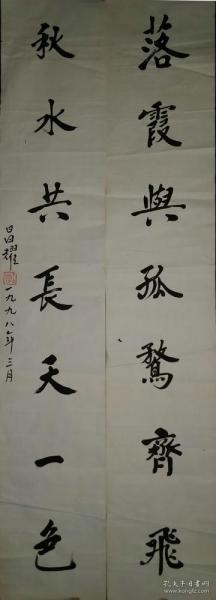 落霞與孤鶩齊飛
秋水共長天一色
一九九八年三月
孔夫子旧书网